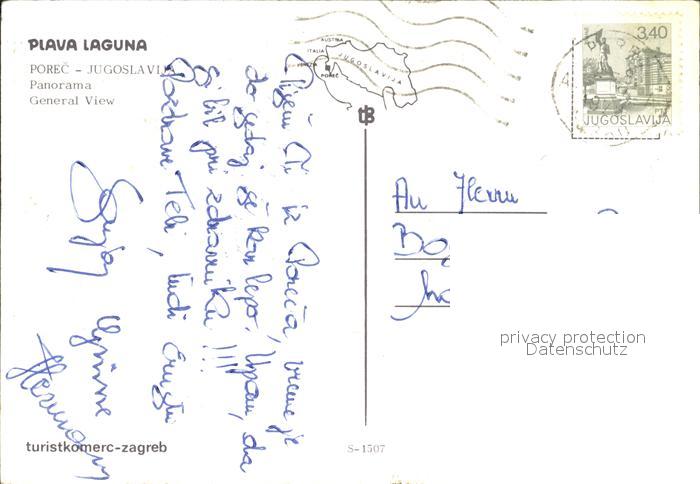 PLAVA LAGUNA
POREČ – JUGOSLAVIJA
Panorama
General View
AUSTRIA
ITALIA
JUGOSLAVIJA
POREČ
tB
3,40
JUGOSLAVIJA
Pišem Ti iz Poreča, vreme je
do sedaj še kar lepo. Upam, da
si bil pri zdravniku !!!
Pozdrave Tebi, tudi
Hermann
An Herrn
privacy protection
Datenschutz
turistkomerc-zagreb
S-1507